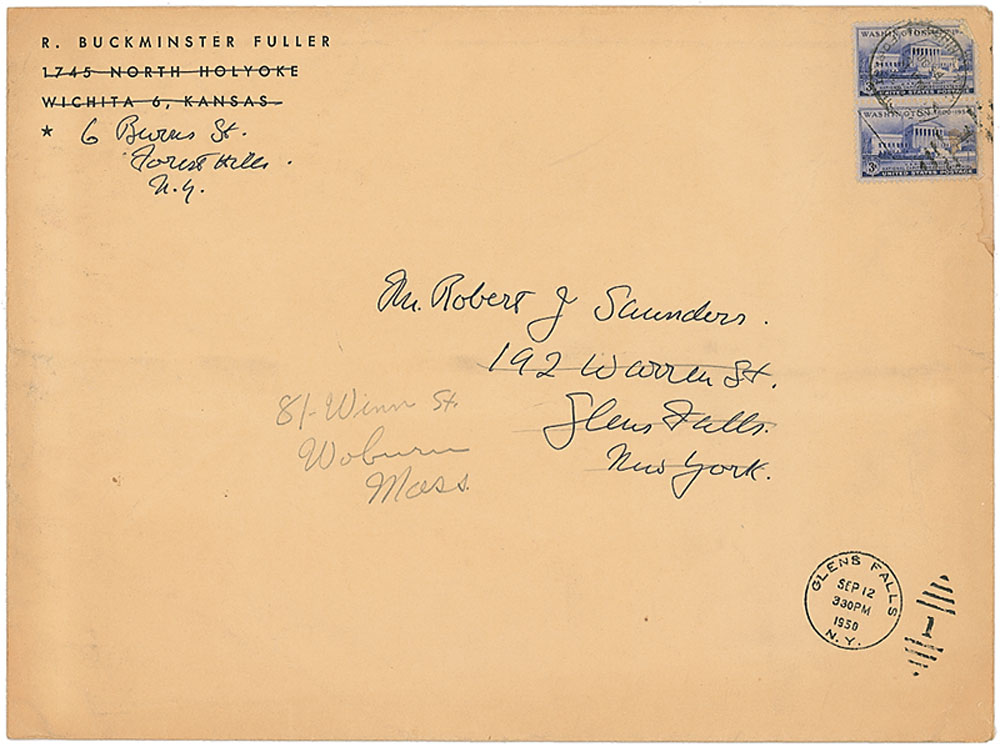 R. BUCKMINSTER FULLER
1745 NORTH HOLYOKE
WICHITA 6, KANSAS
* 6 Burns St.
Forest Hills.
N.Y.
WASHINGTON
3¢
UNITED STATES POSTAGE
WASHINGTON 1800-1950
3¢
UNITED STATES POSTAGE
Mr. Robert J Saunders.
192 Warren St.
Glens Falls.
New York.
81-Winn St.
Woburn
Mass.
GLENS FALLS
SEP 12
330PM
1950
N.Y.
1